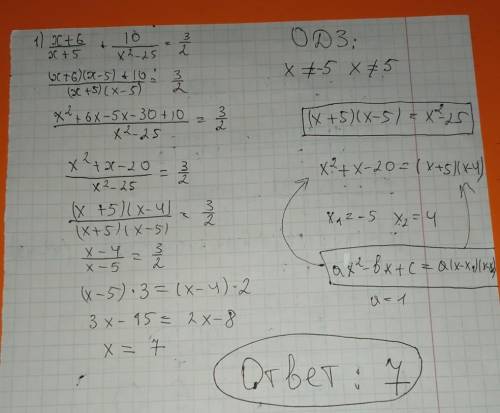 1) x+6/x+5 + 10/x²-25 = 3/2
(x+6)(x-5)+10/(x+5)(x-5) = 3/2
x²+6x-5x-30+10/x²-25 = 3/2
x²+x-20/x²-25 = 3/2
(x+5)(x-4)/(x+5)(x-5) = 3/2
x-4/x-5 = 3/2
(x-5)·3=(x-4)·2
3x-15= 2x-8
x = 7
ОДЗ:
x≠-5 x≠5
(x+5)(x-5)=x²-25
x²+x-20=(x+5)(x-4)
x₁=-5 x₂=4
ax²-bx+c=a(x-x₁)(x-x₂)
a=1
Ответ: 7